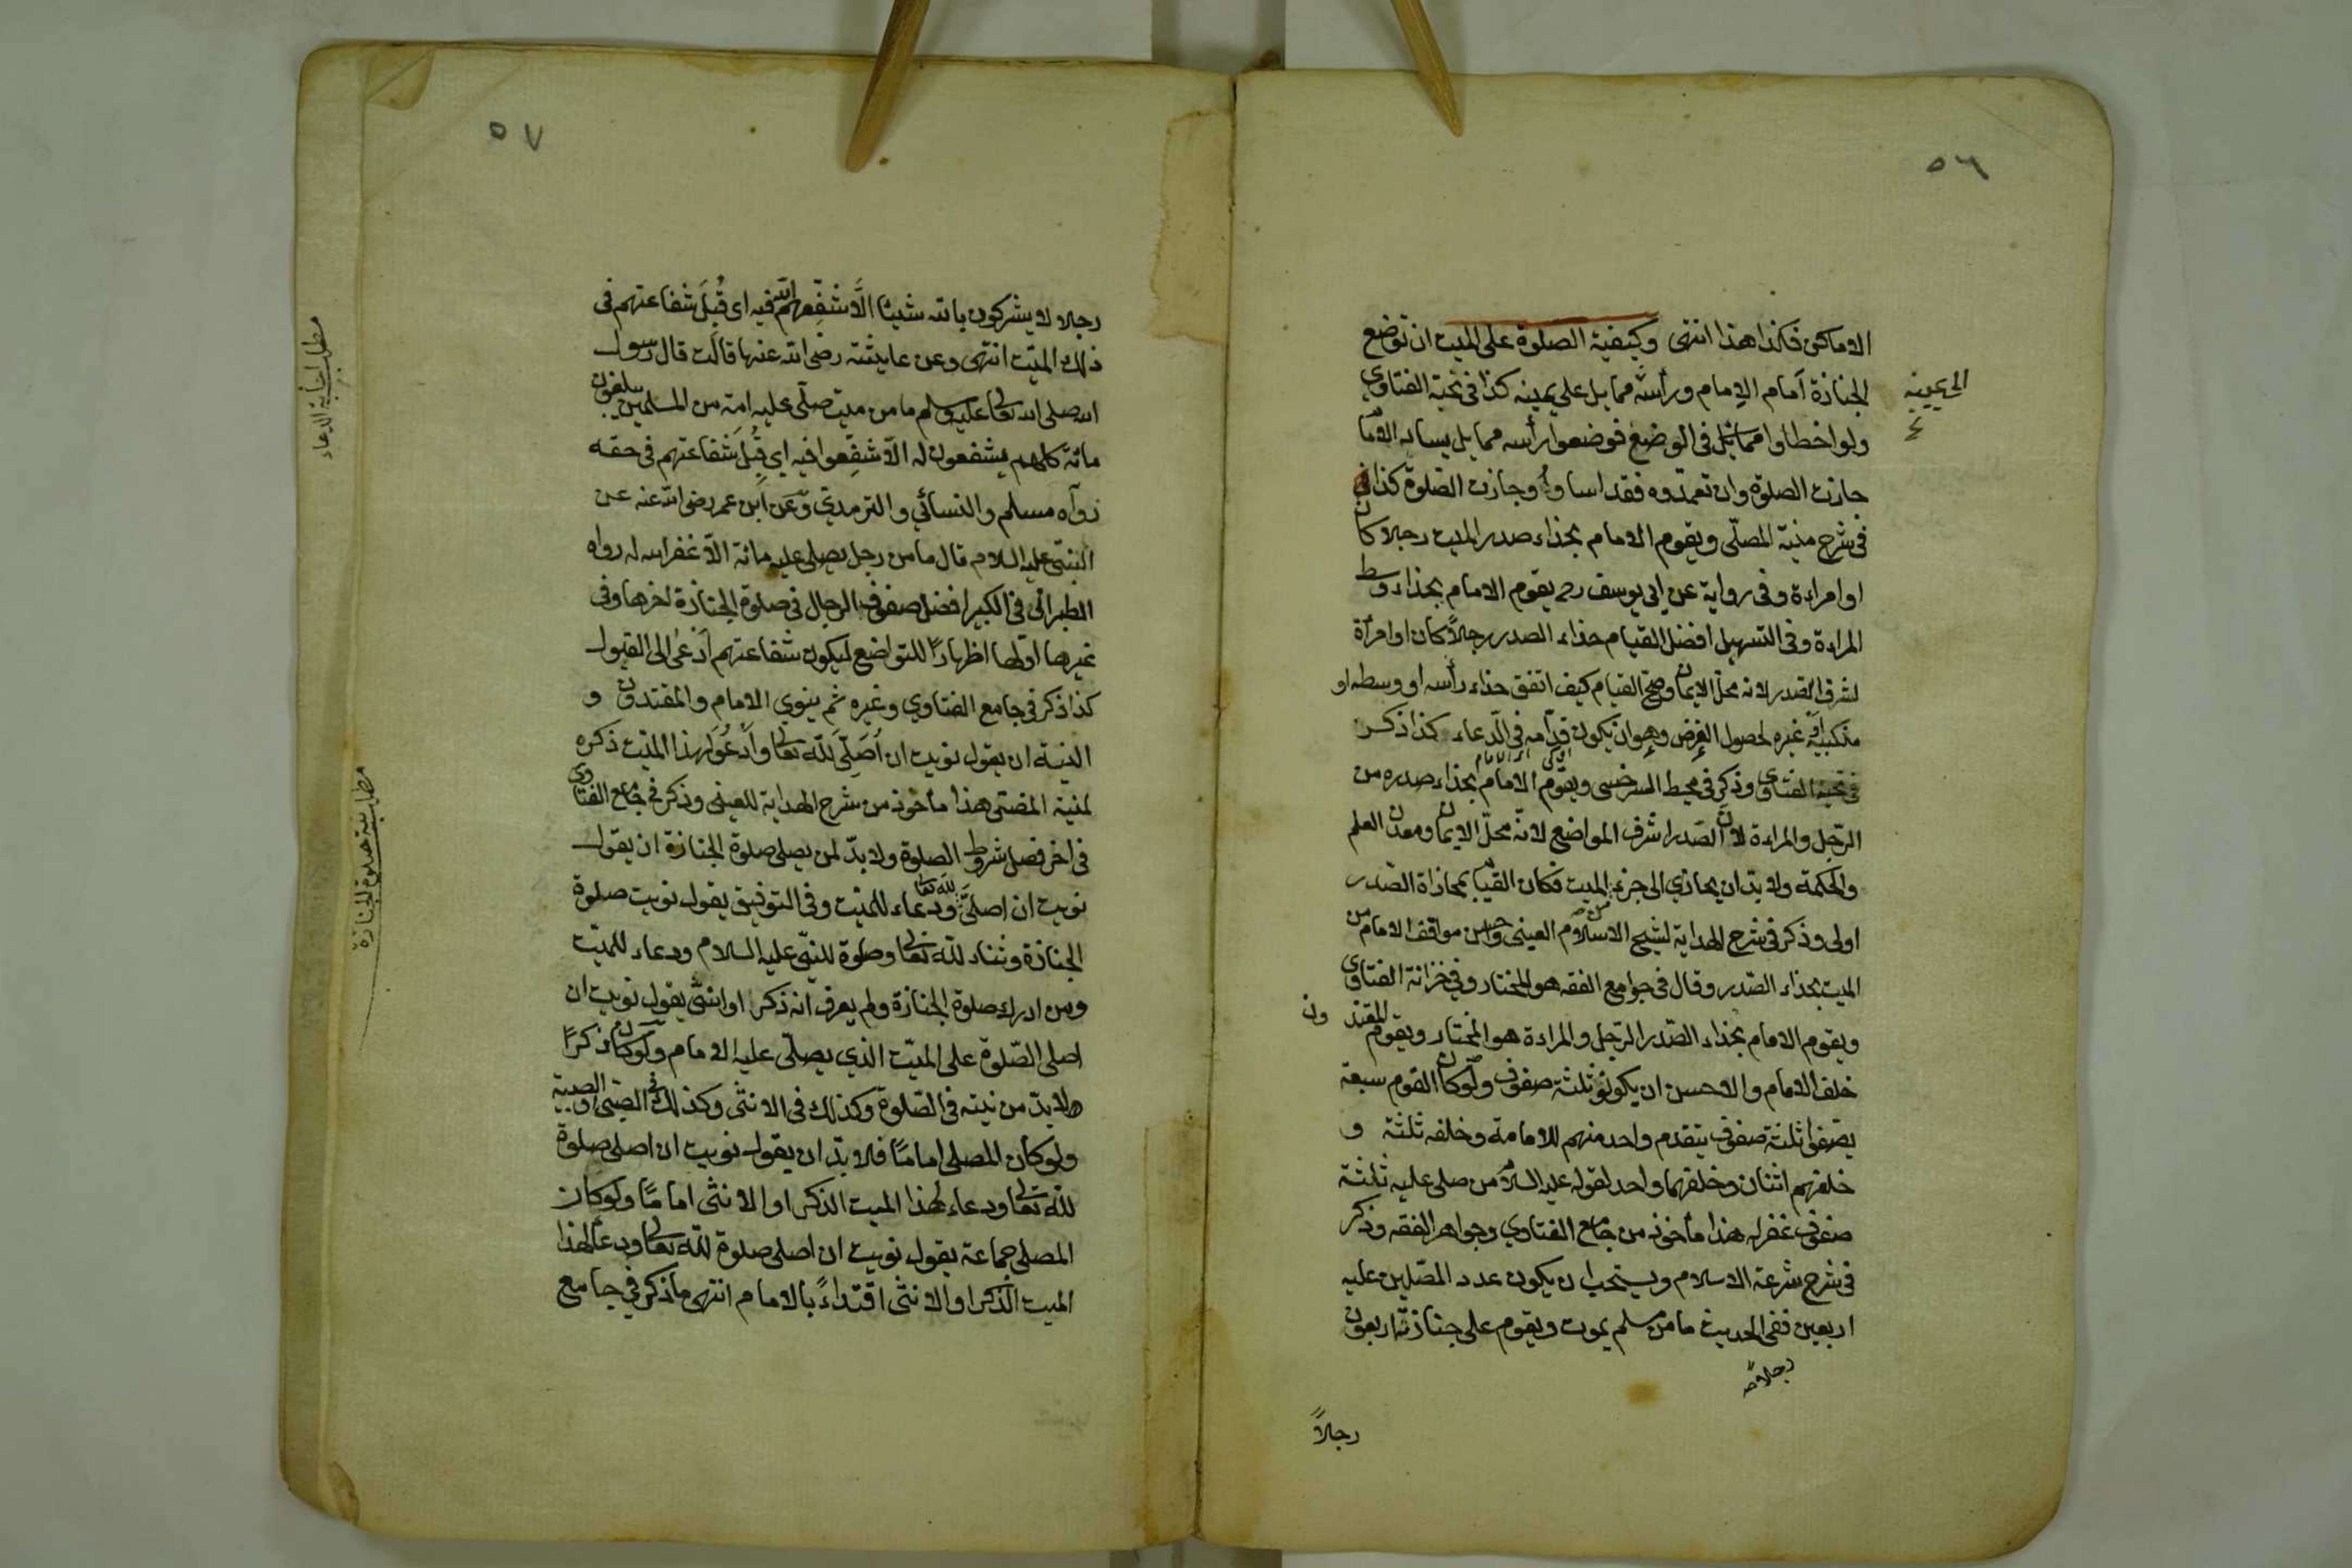 ٥٦
الاماكن فكذا هذا انتهى وكيفية الصلوة على الميت ان توضع
الجنازة امام الامام ورأسه مما يلي على يمينه كذا في نخبة الفتاوي
الى يمينه
ولو اخطاوا في الوضع فوضعوا رأسه مما يلي يسار الامام
جازت الصلوة وان تعمدوه فقد اساوا وجازت الصلوة كذا
في شرح منية المصلّي ويقوم الامام بحذاء صدر الميت رجلا كان
او امراءة وفى رواية عن ابي يوسف رح يقوم الامام بحذاء وسط
المراءة وفي التسهيل افضل القيام حذاء الصدر رجلاً كان او امرأة
لشرف الصدر لانه محلّ الايمان وصح القيام كيف اتفق حذاء رأسه او وسطه او
منكبيه او غيره لحصول الغرض وهو ان يكون قدّامه في الدّعاء كذا ذكر
في نخبة الفتاوى وذكر في محيط السرخسى ويقوم الامام بحذاء صدره من
الرّجل والمراءة لان الصّدر اشرف المواضع لانّه محلّ الايمان ومعدن العلم
والحكمة ولا بد ان يحاذي الى جزء الميت فكان القيام بمحاذاة الصّدر
اولى وذكر في شرح الهداية لشيخ الاسلام العينى واحسن مواقف الامام من
الميت بحذاء الصّدر وقال في جوامع الفقه هو المختار وفي خزانة الفتاوى
ويقوم الامام بحذاء الصّدر الرّجل والمراءة هو المختار ويقوم المقتدون
خلف الامام والاحسن ان يكونوا ثلثة صفوف ولو كان القوم سبعة
يصفوا ثلثة صفوف يتقدم واحد منهم للامامة وخلفه ثلثة و
خلفهم اثنان وخلفهما واحد لقوله عليه السلام من صلى عليه ثلثة
صفوف غفر له هذا مأخوذ من جامع الفتاوي وجواهر الفقه وذكر
في شرح شرعة الاسلام ويستحب ان يكون عدد المصّلين عليه
اربعين ففى الحديث ما من مسلم يموت ويقوم على جنازته اربعون
رجلا
رجلاً
٥٧
رجلا لا يشركون بالله شيئا الّا شفّعهم الله فيه اى قُبِلَ شفاعتهم في
ذلك الميّت انتهى وعن عايشة رضى الله عنها قالت قال رسول
الله صلى الله تعالى عليه وسلم ما من ميت صلّى عليه امة من المسلمين يبلغون
مائة كلهم يشفعون له الّا شفّعوا فيه اي قُبِلَ شفاعتهم في حقه
رواه مسلم والنسائي والترمذي وعن ابن عمر رضى الله عنه عن
النبيّ عليه السلام قال ما من رجل يصلي عليه مائة الّا غفر الله له رواه
الطبرانى في الكبير افضل صفوف الرجال في صلوة الجنازة اخرها وفى
غيرها اولها اظهارًا للتواضع ليكون شفاعتهم اَدْعٰى الى القبول
كذا ذكر في جامع الفتاوي وغيره ثم ينوي الامام والمقتدون و
النية ان يقول نويت ان اُصَلّيَ للّه تعالى واَدْعُوَ لهذا الميّت ذكره
لمنية المفتى هذا مأخوذ من شرح الهداية للعينى وذكر في جامع الفتاوى
في اخر فصل شروط الصلوة ولا بدّ لمن يصلى صلوة الجنازة ان يقول
نويت ان اصلّيَ لله تعالى ودعاء للميّت وفى التوفيق يقول نويت صلوة
الجنازة وثناء للّه تعالى وصلوة للنبيّ عليه السلام ودعاء للميّت
ومن ادرك صلوة الجنازة ولم يعرف انه ذكر او انثى يقول نويت ان
اصلى الصّلوة على الميّت الذي يصلّى عليه الامام ولو كان ذكرًا
فلا بدّ من نيته في الصّلوة وكذلك في الانثى وكذلك في الصبيّ والصبية
ولو كان المصلى امامًا فلا بدّ ان يقول نويت ان اصلى صلوة
للّه تعالى ودعاء لهذا الميت الذكر او الانثى امامًا ولو كان
المصلى جماعة يقول نويت ان اصلى صلوة للّه تعالى ودعاء لهذا
الميت الذكر او الانثى اقتداءً بالامام انتهى ما ذكر في جامع
مطلب اجابة الدعاء
مطلب نية صلوة الجنازة